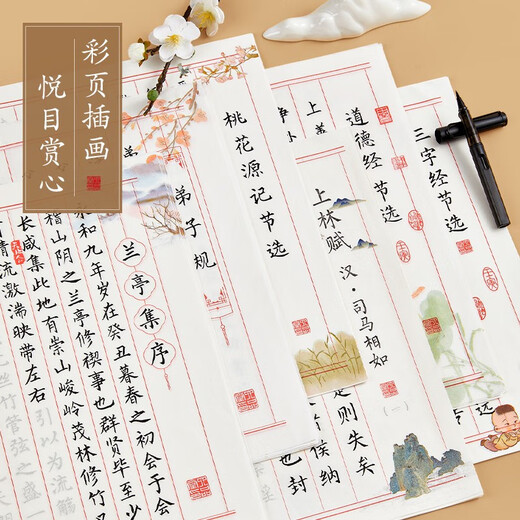 彩页插画
悦目赏心
三字经节选
道德经节选
上林赋 汉·司马相如
(一)
是则失矣
侯纳
也封
桃花源记节选
弟子规
兰亭集序
永和九年岁在癸丑暮春之初会于会
稽山阴之兰亭修禊事也群贤毕至少
长咸集此地有崇山峻岭茂林修竹又
清流激湍映带左右
引以为流觞
丝竹管弦之盛一